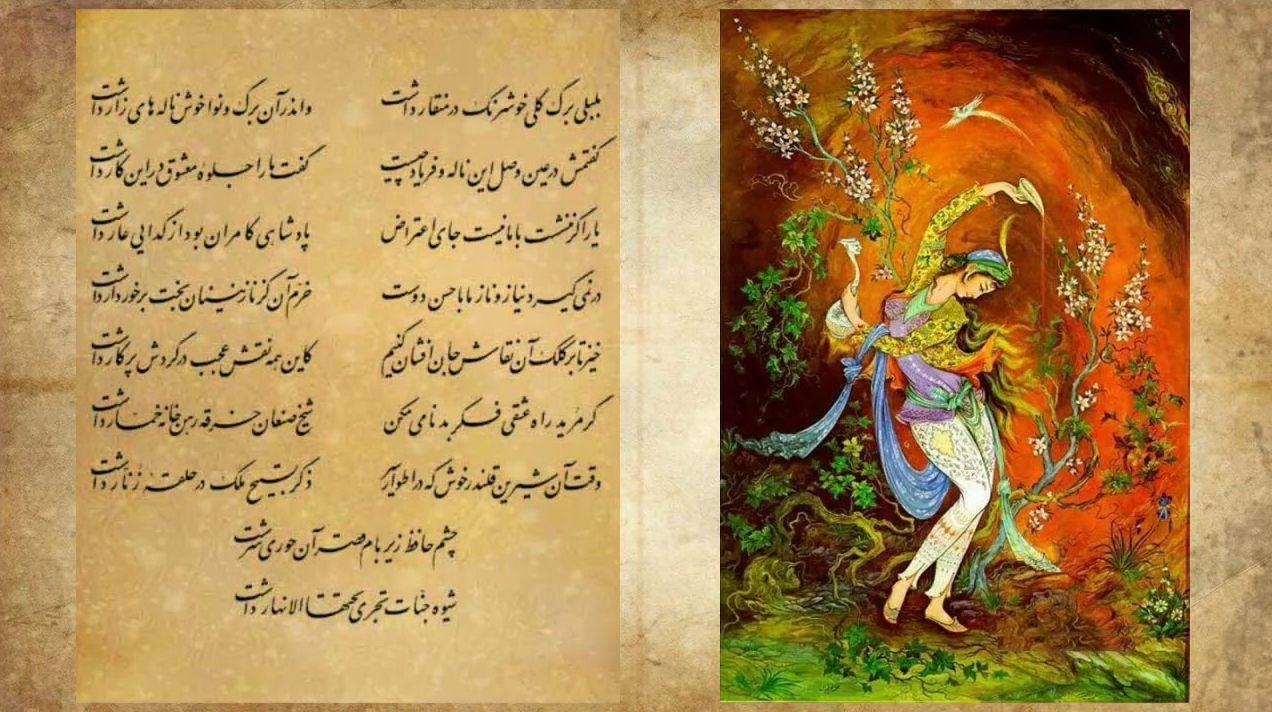 بلبلی برگ گلی خوشرنگ در منقار داشت واندر آن برگ و نوا خوش ناله های زار داشت
گفتمش در عین وصل این ناله و فریاد چیست گفت ما را جلوهٔ معشوق در این کار داشت
یار اگر ننشست با ما نیست جای اعتراض پادشاهی کامران بود از گدایی عار داشت
در نمی گیرد نیاز و ناز ما با حسن دوست خرم آن کز نازنینان بخت برخوردار داشت
خیز تا بر کلک آن نقاش جان افشان کنیم کاین همه نقش عجب در گردش پرگار داشت
گر مرید راه عشقی فکر بدنامی مکن شیخ صنعان خرقه رهن خانه خمار داشت
وقت آن شیرین قلندر خوش که در اطوار ذکر تسبیح ملک در حلقهٔ زنار داشت
چشم حافظ زیر بام قصر آن حوری سرشت
شیوه جنات تجری تحتها الانهار داشت